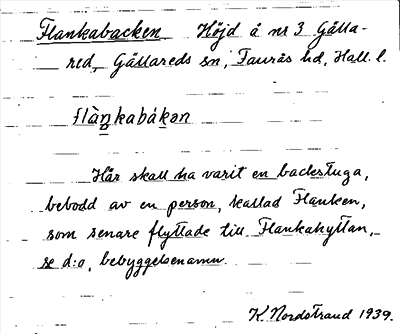 Flankabacken. Höjd å nr 3 Gälla-
red, Gällareds sn, Faurås hd, Hall. l.
flàŋkabákən
Här skall ha varit en backstuga,
bebodd av en person, kallad Flanken,
som senare flyttade till Flankahyltan,
se d:o, bebyggelsenamn.
K. Nordstrand 1939.